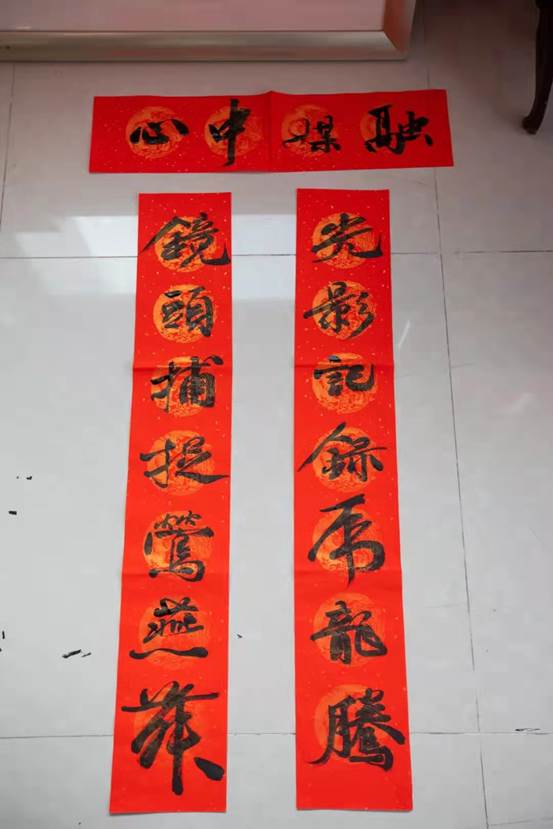 融媒中心
光影記錄虎龍騰
鏡頭捕捉鶯燕舞